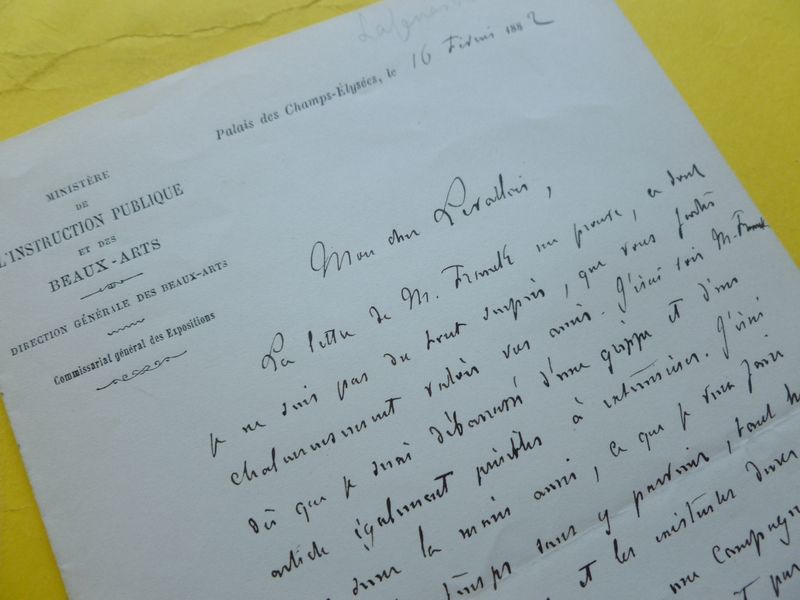 Lafenestre
Palais des Champs-Élysées, le 16 Février 1882
MINISTÈRE
DE
L'INSTRUCTION PUBLIQUE
ET DES
BEAUX-ARTS
DIRECTION GÉNÉRALE DES BEAUX-ARTS
Commissariat général des Expositions
Mon cher Levallois,
La lettre de M. Franck me prouve, ce dont
je ne suis pas du tout surpris, que vous faites
chaleureusement valoir vos amis. J'irai voir M. Franck
dès que je serai débarrassé d'une grippe et d'un
article également pénibles à
la main aussi, ce que je veux faire
temps sans y parvenir, tout
et les
une campagne
pas